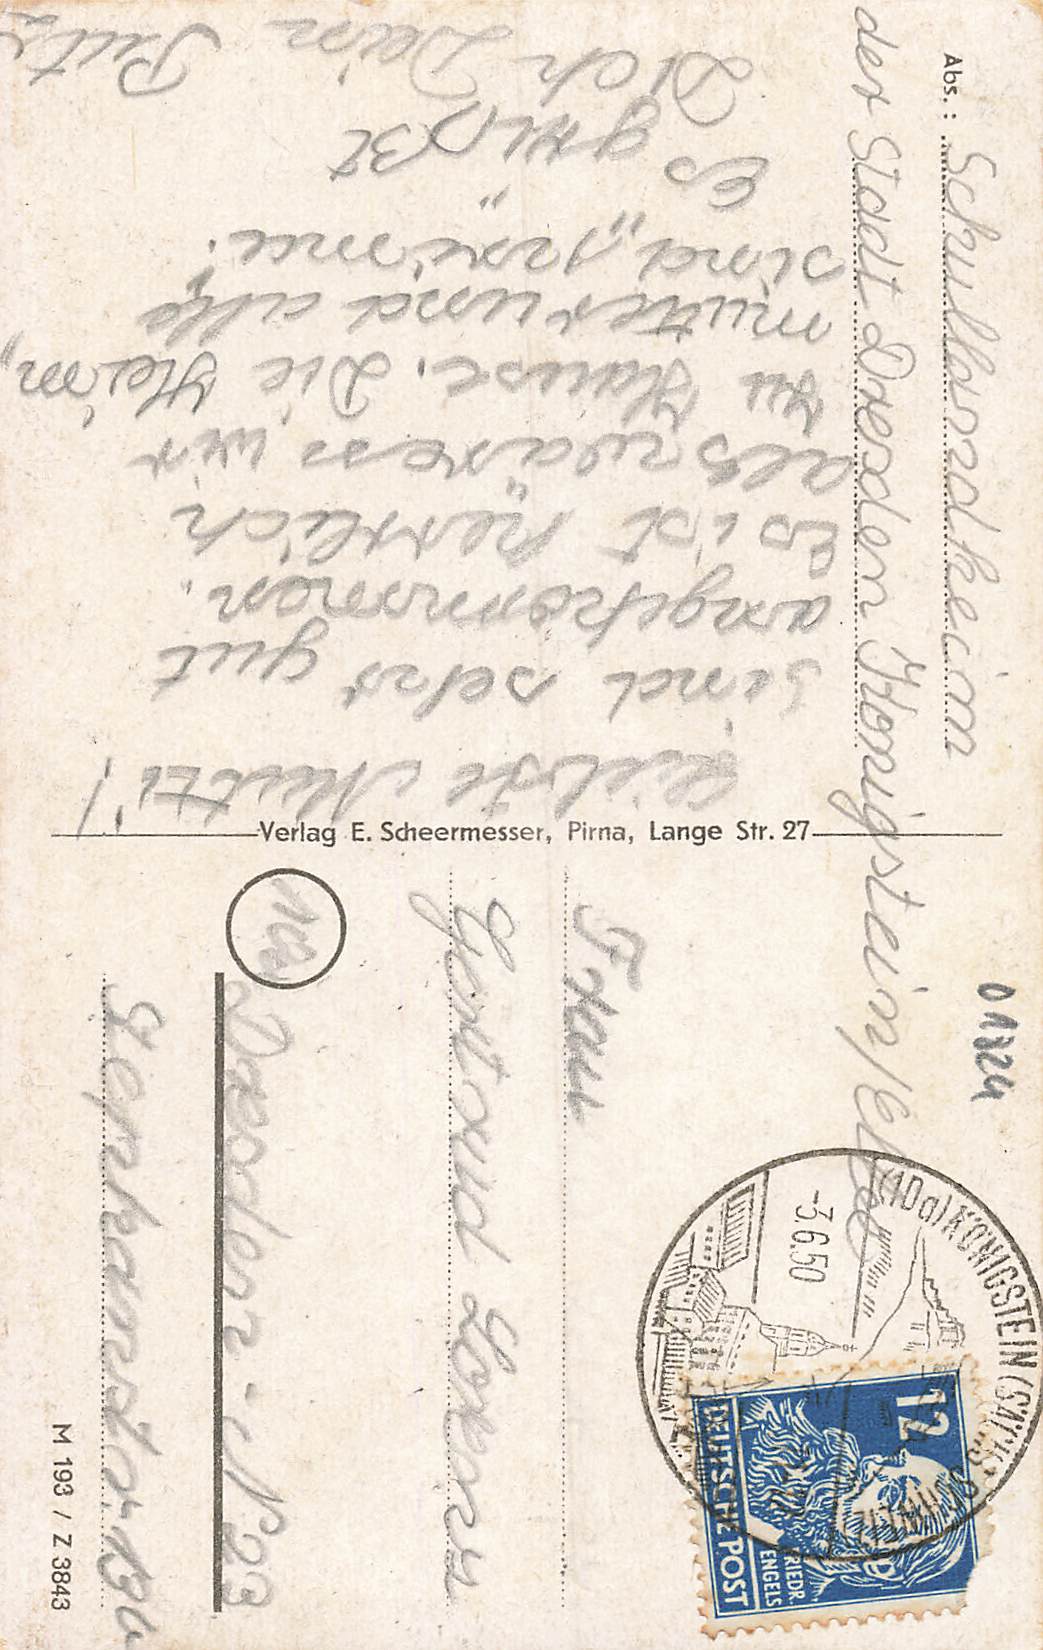 Abs.: Schullandheim
der Stadt Dresden Königstein/Elbe
Liebste Mutti!
Sind sehr gut
angekommen.
Es ist herrlich
als wären wir
zu Hause. Die Heim„
mutter und alle
sind „prima“.
Es grüßt
Dich Dein
Verlag E. Scheermesser, Pirna, Lange Str. 27
01824
(10a) KÖNIGSTEIN
-3.6.50
12
DEUTSCHE POST
FRIEDR.
ENGELS
Frau
Gertraud Lorenz
10a
Dresden-N 23
M 193 / Z 3843